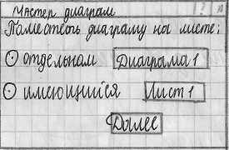 Мастер диаграм
Поместеть диаграму на листе:
отдельном Диаграма 1
имеющийся Лист 1
Дылее